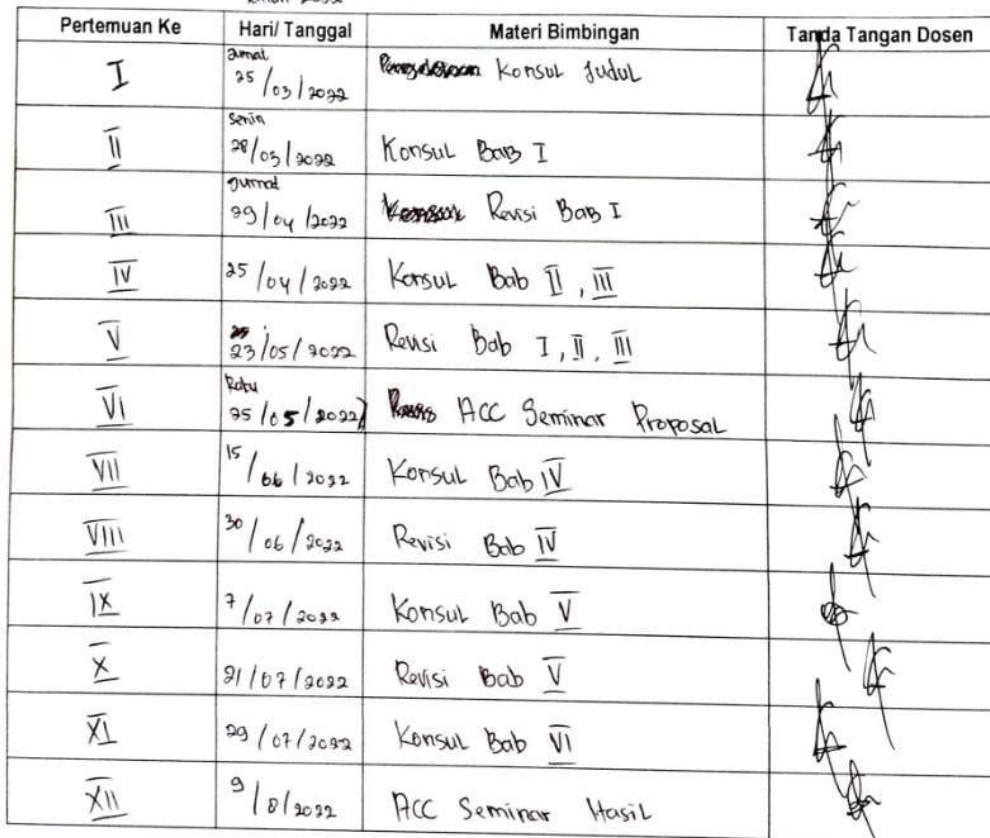 Tahun 2022
Pertemuan Ke Hari/ Tanggal Materi Bimbingan Tanda Tangan Dosen
I Jumat 25/03/2022 Konsul Judul
II Senin 28/03/2022 Konsul Bab I
III Jumat 29/04/2022 Revisi Bab I
IV 25/04/2022 Konsul Bab II, III
V 23/05/2022 Revisi Bab I, II, III
VI Rabu 25/05/2022 ACC Seminar Proposal
VII 15/06/2022 Konsul Bab IV
VIII 30/06/2022 Revisi Bab IV
IX 7/07/2022 Konsul Bab V
X 21/07/2022 Revisi Bab V
XI 29/07/2022 Konsul Bab VI
XII 9/8/2022 ACC Seminar Hasil